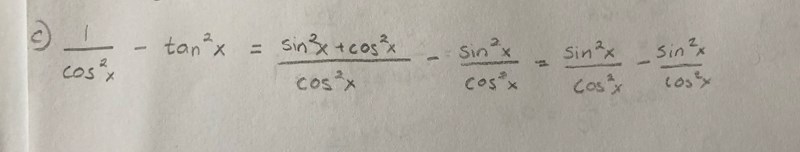 c) \frac{1}{cos²x} - tan²x = \frac{sin²x + cos²x}{cos²x} - \frac{sin²x}{cos²x} = \frac{sin²x}{cos²x} - \frac{sin²x}{cos²x}